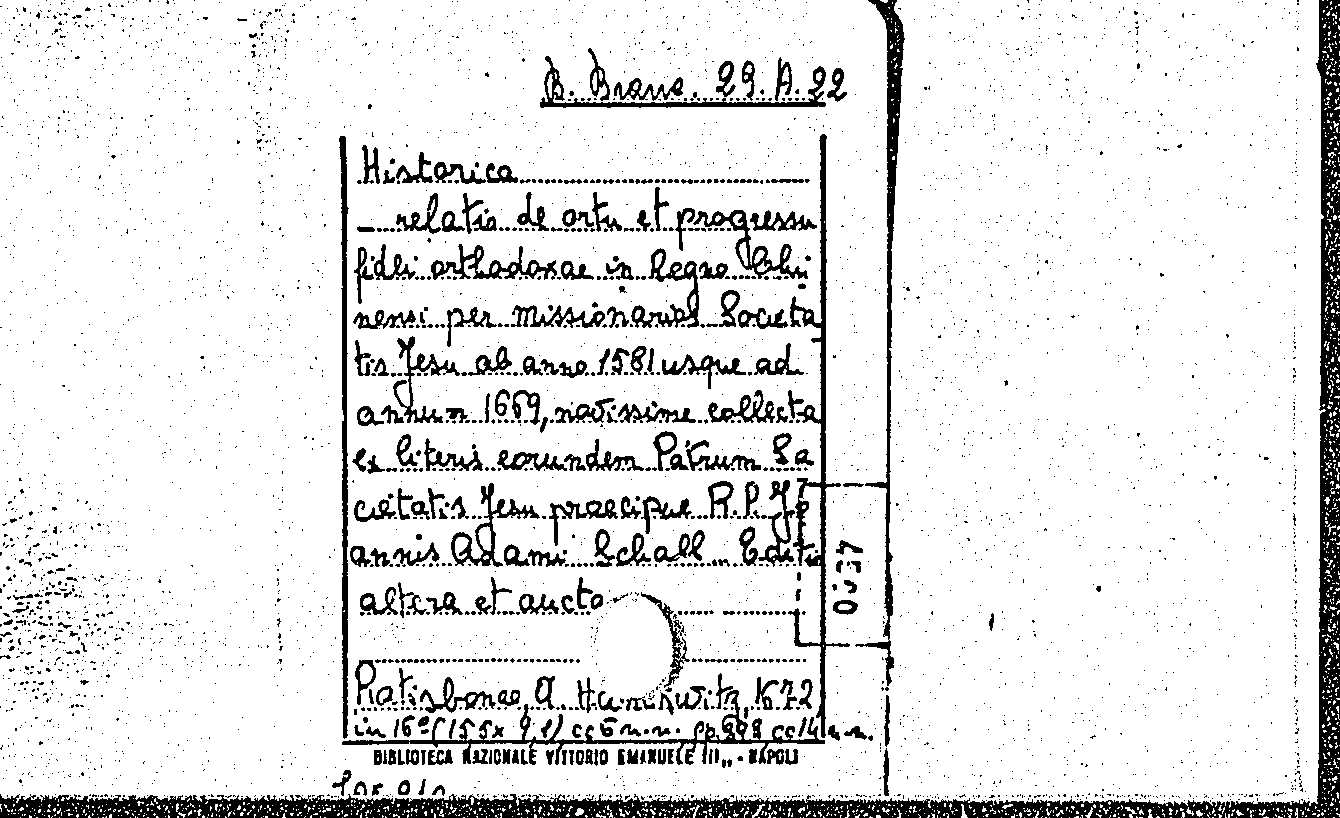 B. Branc. 29. A. 22
Historica
_ relatio de ortu et progressu
fidei orthodoxae in Regno Chi
nensi per missionarios Societa
tis Jesu ab anno 1581 usque ad
annum 1669, novissime collecta
ex literis eorundem Patrum So
cietatis Jesu praecipue R. P. Jo
annis Adami Schall .. Editio
altera et aucta
Ratisbonae, A. Hanckwitz, 1672
in 16° (15,5x 9,1) cc 6 n.n. pp. cc 14 n.n.
BIBLIOTECA NAZIONALE VITTORIO EMANUELE III,, - NAPOLI